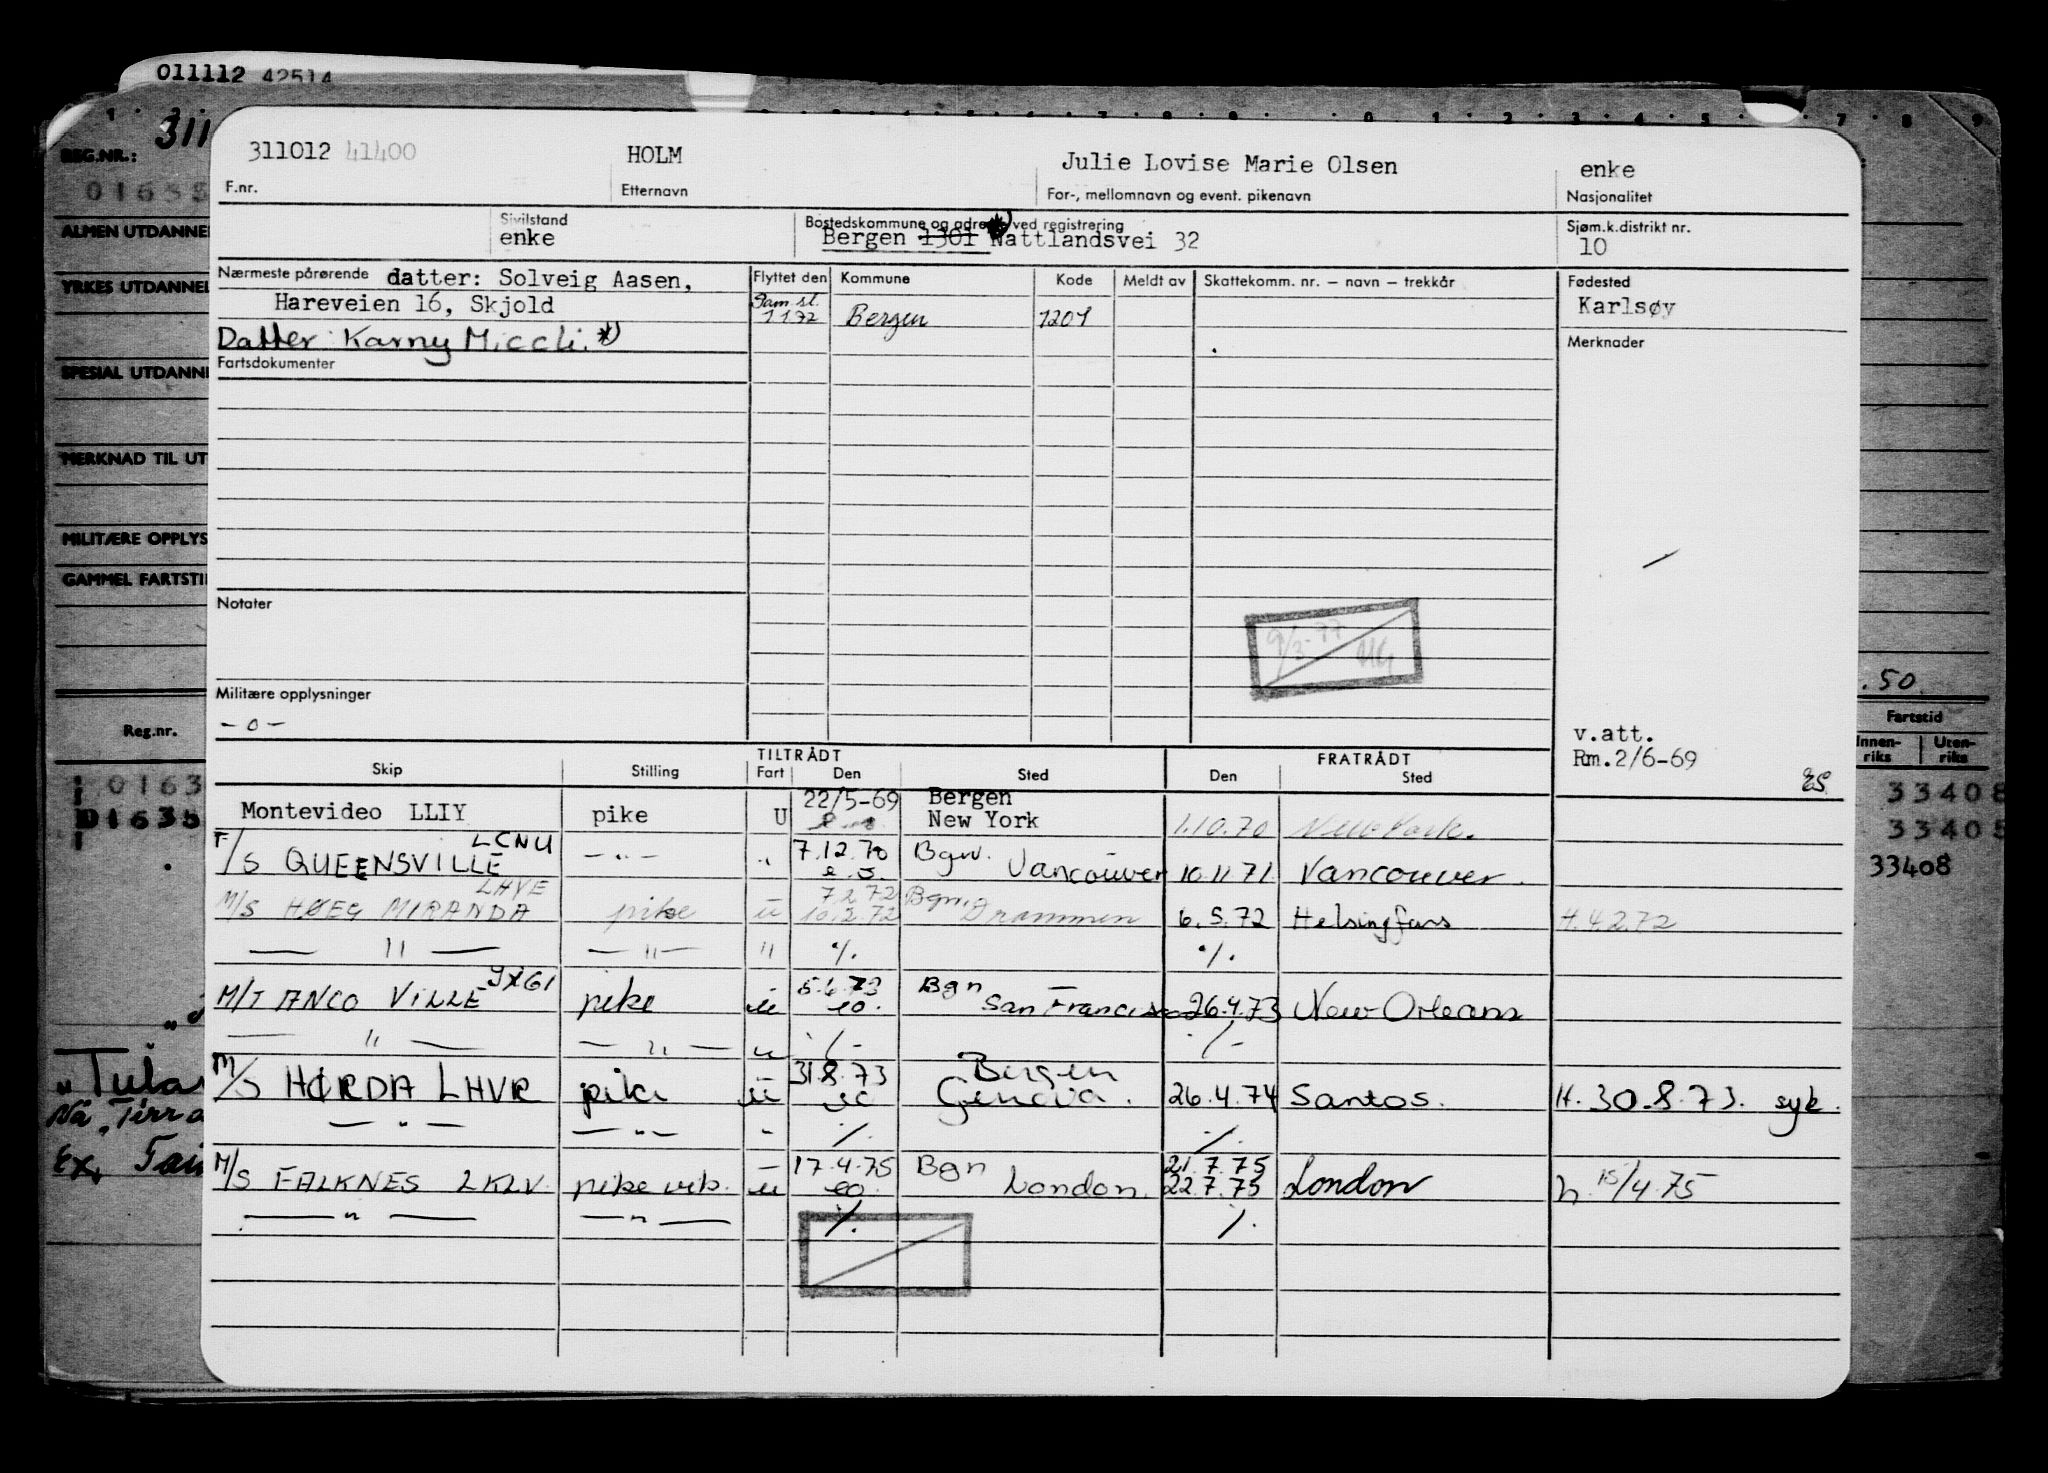 011112 42514
311
REG.NR.:
01635
ALMEN UTDANNE
YRKES UTDANNEL
SPESIAL UTDANN
MERKNAD TIL UT
MILITÆRE OPPLYS
GAMMEL FARTSTI
Reg.nr.
0163
01635
"Tula
Nå "Tirra
Ex,
311012 41400 HOLM Julie Lovise Marie Olsen enke
F.nr. Etternavn For-, mellomnavn og event. pikenavn Nasjonalitet
Sivilstand Bostedskommune og adresse ved registrering Sjøm.k.distrikt nr.
enke Bergen 1301 Nattlandsvei 32 10
Nærmeste pårørende datter: Solveig Aasen, Flyttet den Kommune Kode Meldt av Skattekomm. nr. – navn – trekkår Fødested
Hareveien 16, Skjold Sam st. Karlsøy
1.1.72 Bergen 1201
Datter Karny Miccli. *)
Fartsdokumenter Merknader
Notater
9/3-77 MG
Militære opplysninger
- o -
v.att.
Rm.2/6-69
ES
TILTRÅDT FRATRÅDT
Skip Stilling Fart Den Sted Den Sted
Montevideo LLIY pike U 22/5-69 Bergen
New York 1.10.70 New York.
F/S QUEENSVILLE LCNU — " — " 7.12.70 Bgn. Vancouver 10.11.71 Vancouver.
M/S HØEG MIRANDA LHVE pike u 7.2.72 Bgn.
10.2.72 Drammen 6.5.72 Helsingfors H.4.2.72
— " — — " — " %. %.
M/T ANCO VILLE JXGI pike u 5.6.73 Bgn San Francisco 26.4.73 New Orleans
— " — — " — " %. %.
M/S HØRDA LHVR pike u 31.8.73 Bergen
Genova. 26.4.74 Santos. H. 30.8.73. syk.
— " — — " — " %. %.
M/S FALKNES LKLV. pike u 17.4.75 Bgn 21.7.75
London. 22.7.75 London h. 15/4.75
— " — — " — %. %.
.50.
Fartstid
Innen-riks Uten-riks
33408
33408
33408